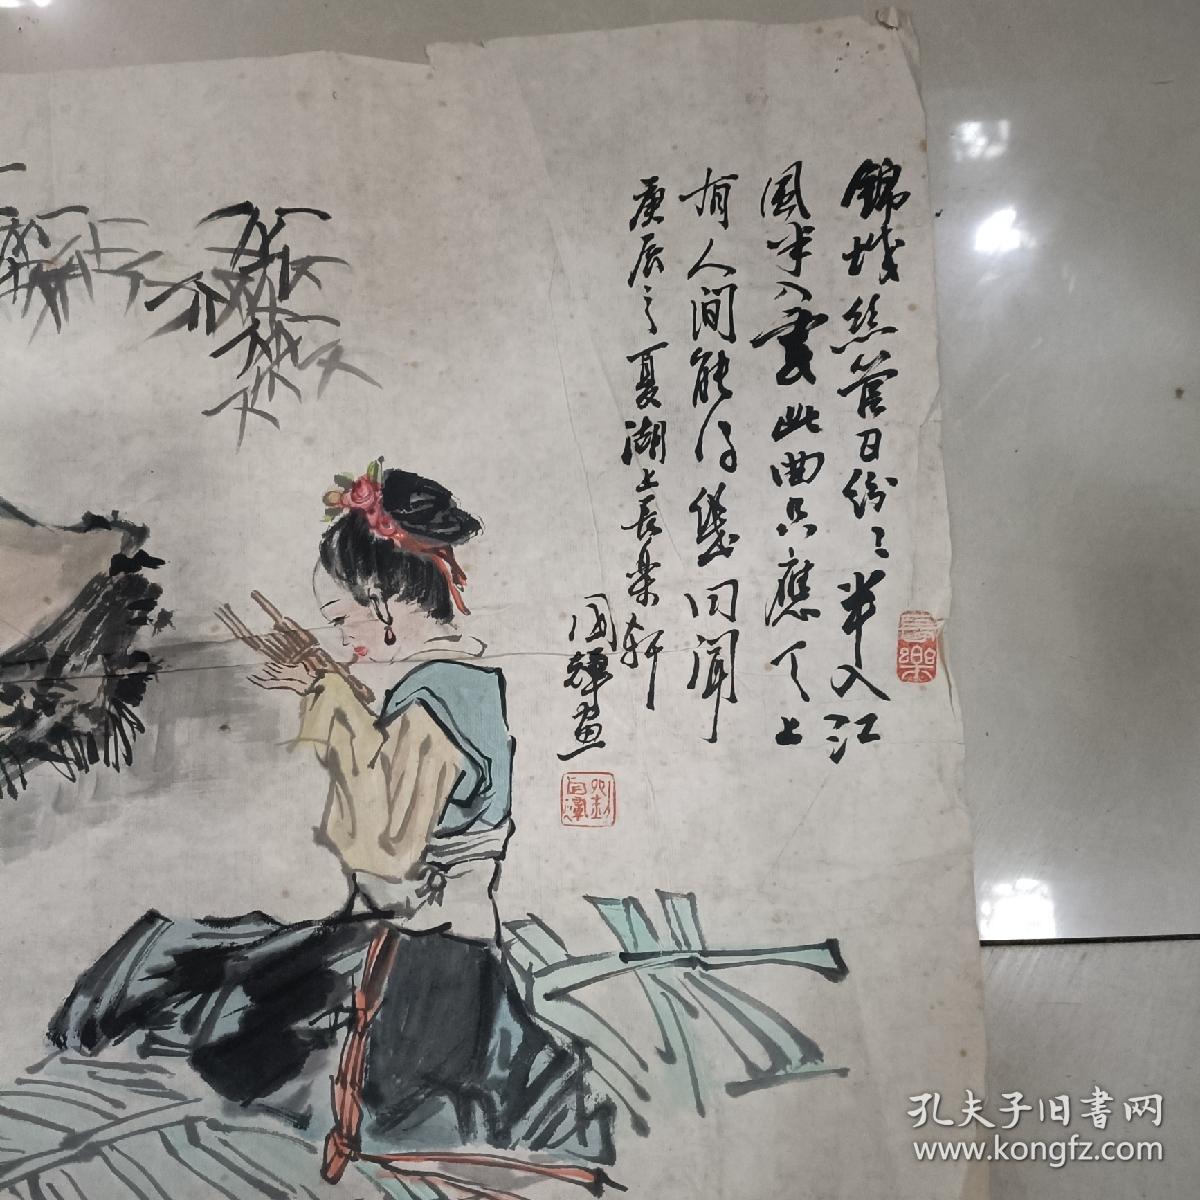 錦城絲管日紛〻半入江
風半入雲此曲只應天上
有人間能得幾回聞
庚辰之夏湖上長樂軒
國輝畫
長樂
孔夫子旧書网
www.kongfz.com